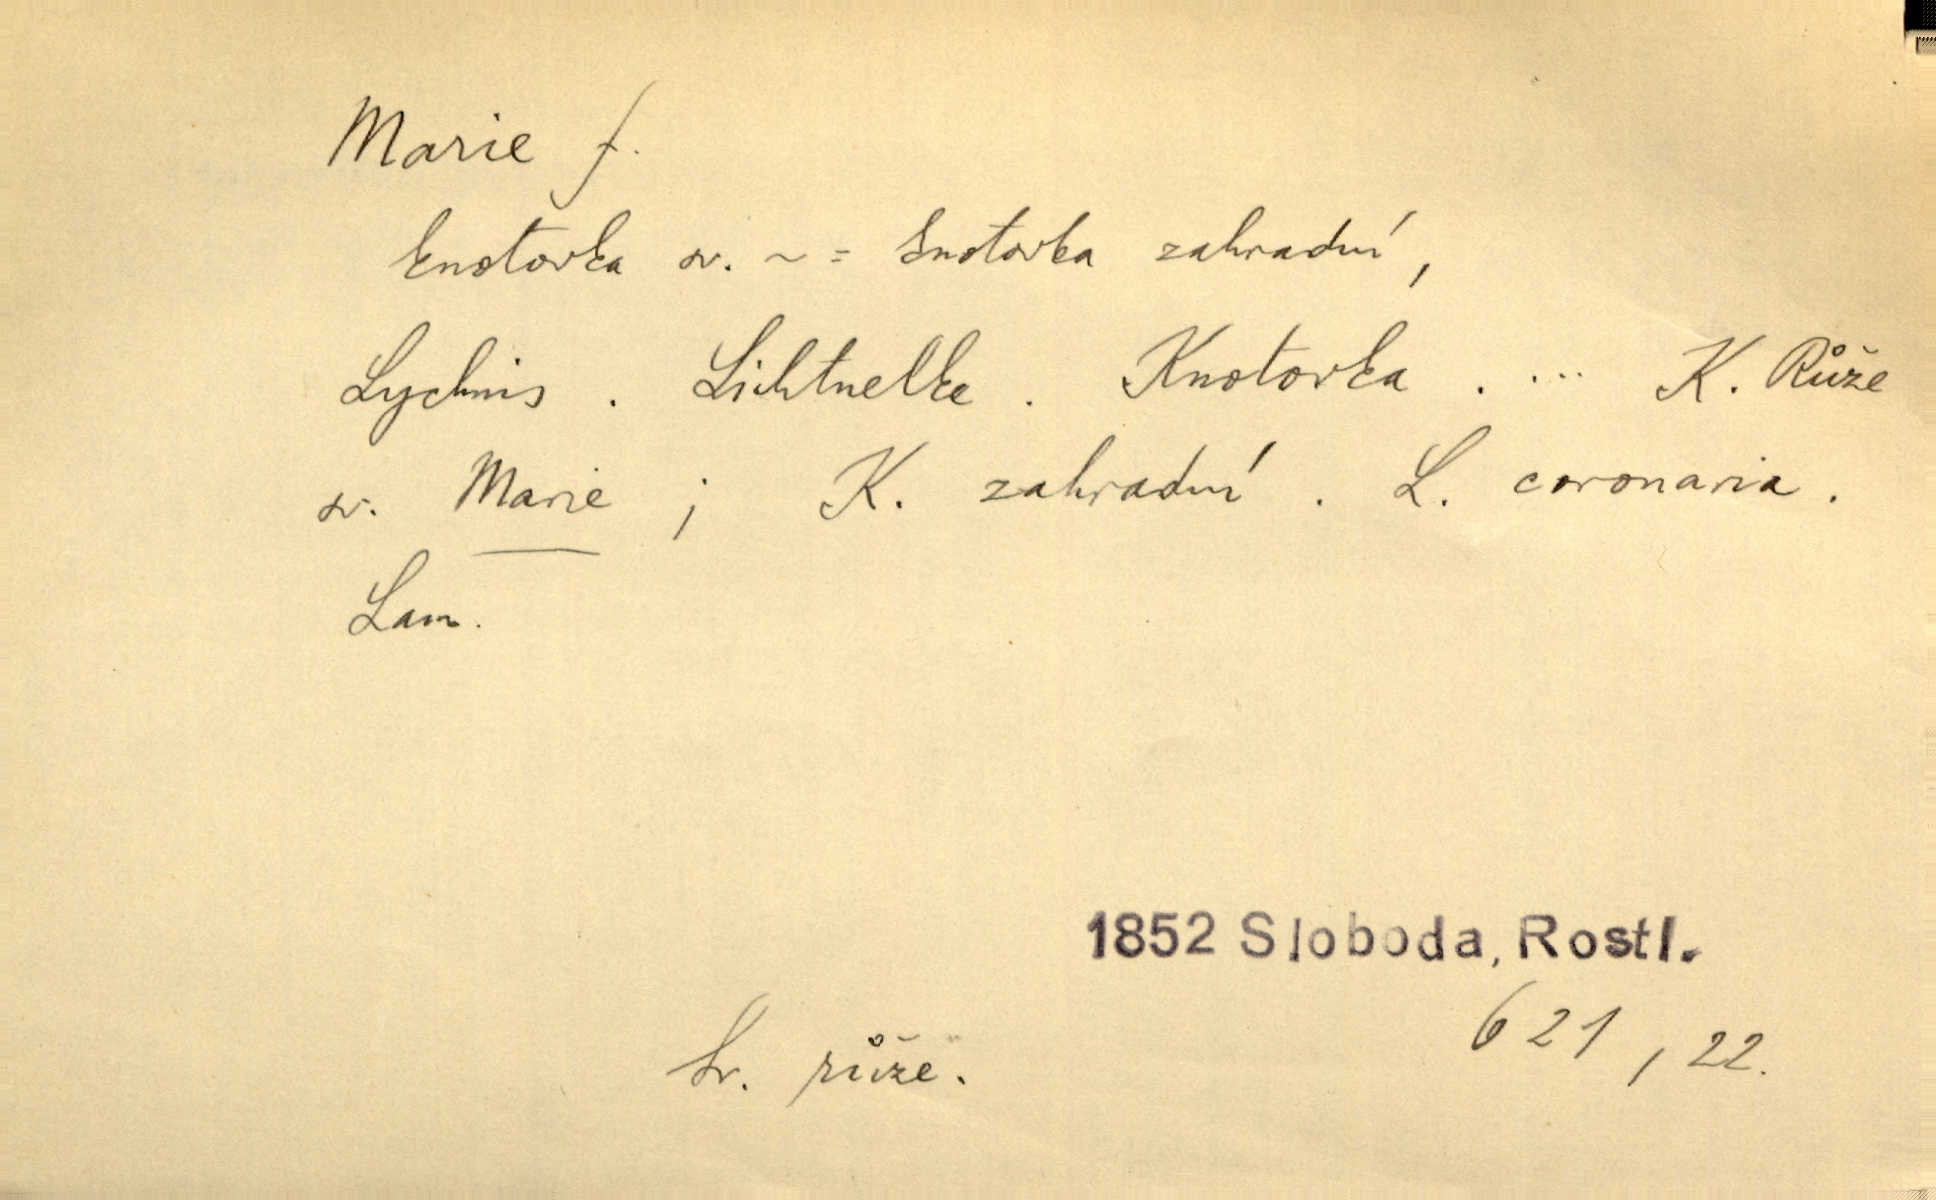 Marie f.
knotovka sv. ~ = knotovka zahradní,
Lychnis . Lichtnelke . Knotovka . ... K. Růže
sv. Marie ; K. zahradní . L. coronaria .
Lam.
1852 Sloboda, Rostl.
621, 22.
Sv. růže.